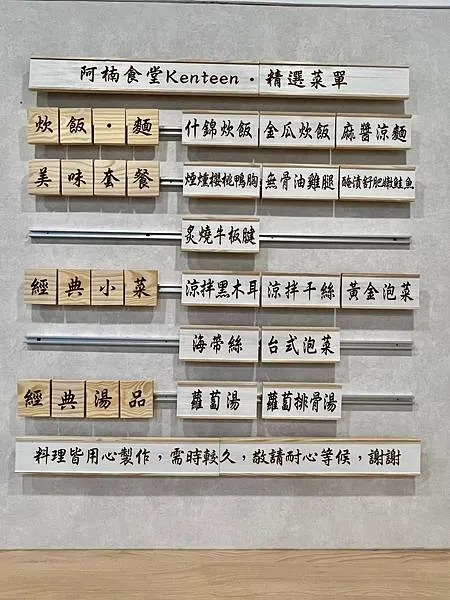 阿楠食堂Kenteen·精選菜單
炊飯·麵 什錦炊飯 金瓜炊飯 麻醬涼麵
美味套餐 煙燻櫻桃鴨胸 無骨油雞腿 醃漬舒肥嫩鮭魚
炙燒牛板腱
經典小菜 涼拌黑木耳 涼拌干絲 黃金泡菜
海帶絲 台式泡菜
經典湯品 蘿蔔湯 蘿蔔排骨湯
料理皆用心製作，需時較久，敬請耐心等候，謝謝